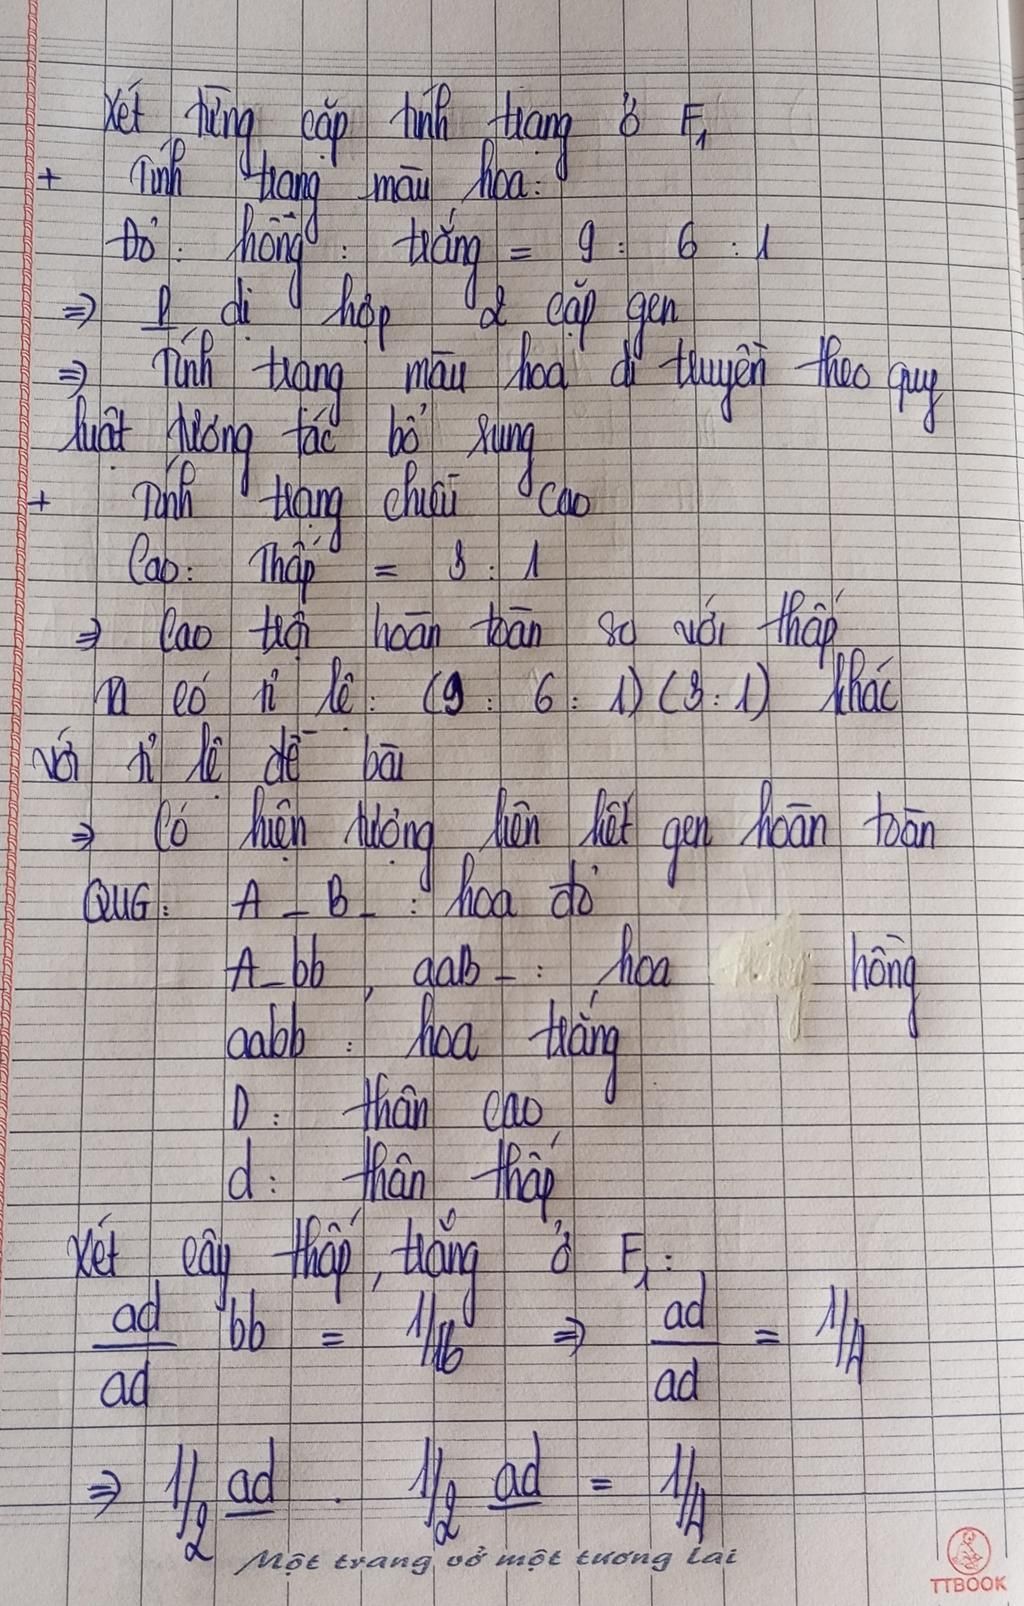 Xét từng cặp tính trạng ở F1
+ Tính trạng màu hoa:
Đỏ : hồng : trắng = 9 : 6 : 1
⇒ P dị hợp 2 cặp gen
⇒ Tính trạng màu hoa di truyền theo quy
luật tương tác bổ sung
+ Tính trạng chiều cao
Cao : Thấp = 3 : 1
⇒ Cao trội hoàn toàn so với thấp
có tỉ lệ : (9 : 6 : 1) (3 : 1) khác
với tỉ lệ đề bài
⇒ Có hiện tượng liên kết gen hoàn toàn
QUG : A_B_ : hoa đỏ
A_bb , aaB_ : hoa hồng
aabb : hoa trắng
D : thân cao
d : thân thấp
Xét cây thấp, trắng ở F1 :
ad/ad bb = 1/16 ⇒ ad/ad = 1/4
⇒ 1/2 ad . 1/2 ad = 1/4
Một trang vở một tương lai
TTBOOK